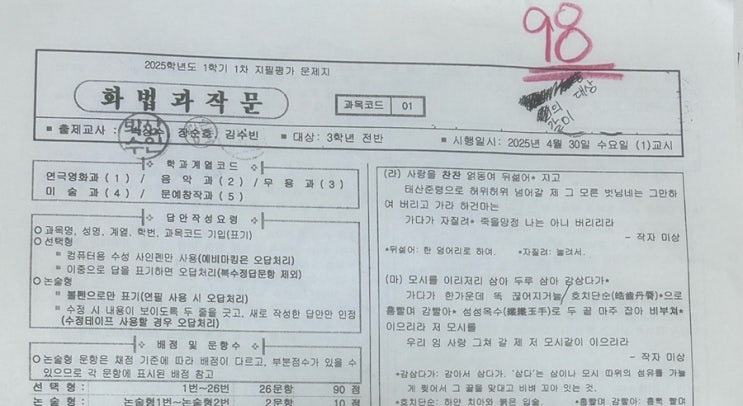 98
2025학년도 1학기 1차 지필평가 문제지
화법과작문
과목코드 01
대상
의
■ 출제교사 : 장순호 김수빈 ■ 대상: 3학년 전반 ■ 시행일시: 2025년 4월 30일 수요일 (1)교시
학과계열코드
연극영화과(1) / 음악과(2) / 무용과(3)
미술과(4) / 문예창작과(5)
답안작성요령
○ 과목명, 성명, 계열, 학번, 과목코드 기입(표기)
○ 선택형
* 컴퓨터용 수성 사인펜만 사용(예비마킹은 오답처리)
* 이중으로 답을 표기하면 오답처리(복수정답문항 제외)
○ 논술형
* 볼펜으로만 표기(연필 사용 시 오답처리)
* 수정 시 내용이 보이도록 두 줄을 긋고, 새로 작성한 답안만 인정
(수정테이프 사용할 경우 오답처리)
배점 및 문항수
○ 논술형 문항은 채점 기준에 따라 배점이 다르고, 부분점수가 있을 수
있으므로 각 문항에 표시된 배점 참고
선 택 형 : 1번~26번 26문항 90 점
논 술 형 : 논술형1번~논술형2번 2문항 10 점
(라) 사랑을 찬찬 얽동여 뒤설어* 지고
태산준령으로 허위허위 넘어갈 제 그 모른 벗님네는 그만하
여 버리고 가라 하건마는
가다가 자질려* 죽을망정 나는 아니 버리리라
- 작자 미상
*뒤설어: 한 덩어리로 하여. *자질려: 눌려서.
(마) 모시를 이리저리 삼아 두루 삼아 감삼다가*
가다가 한가운데 뚝 끊어지거늘 호치단순(皓齒丹脣)*으로
흠빨며 감빨아* 섬섬옥수(纖纖玉手)로 두 끝 마주 잡아 비부쳐*
이으리라 저 모시를
우리 임 사랑 그쳐 갈 제 저 모시같이 이으리라
- 작자 미상
*감삼다가: 감아서 삼다가. '삼다'는 삼이나 모시 따위의 섬유를 가늘
게 찢어서 그 끝을 맞대고 비벼 꼬아 잇는 것.
*호치단순: 하얀 치아와 붉은 입술. *흠빨며 감빨아: 흠뻑 빨며